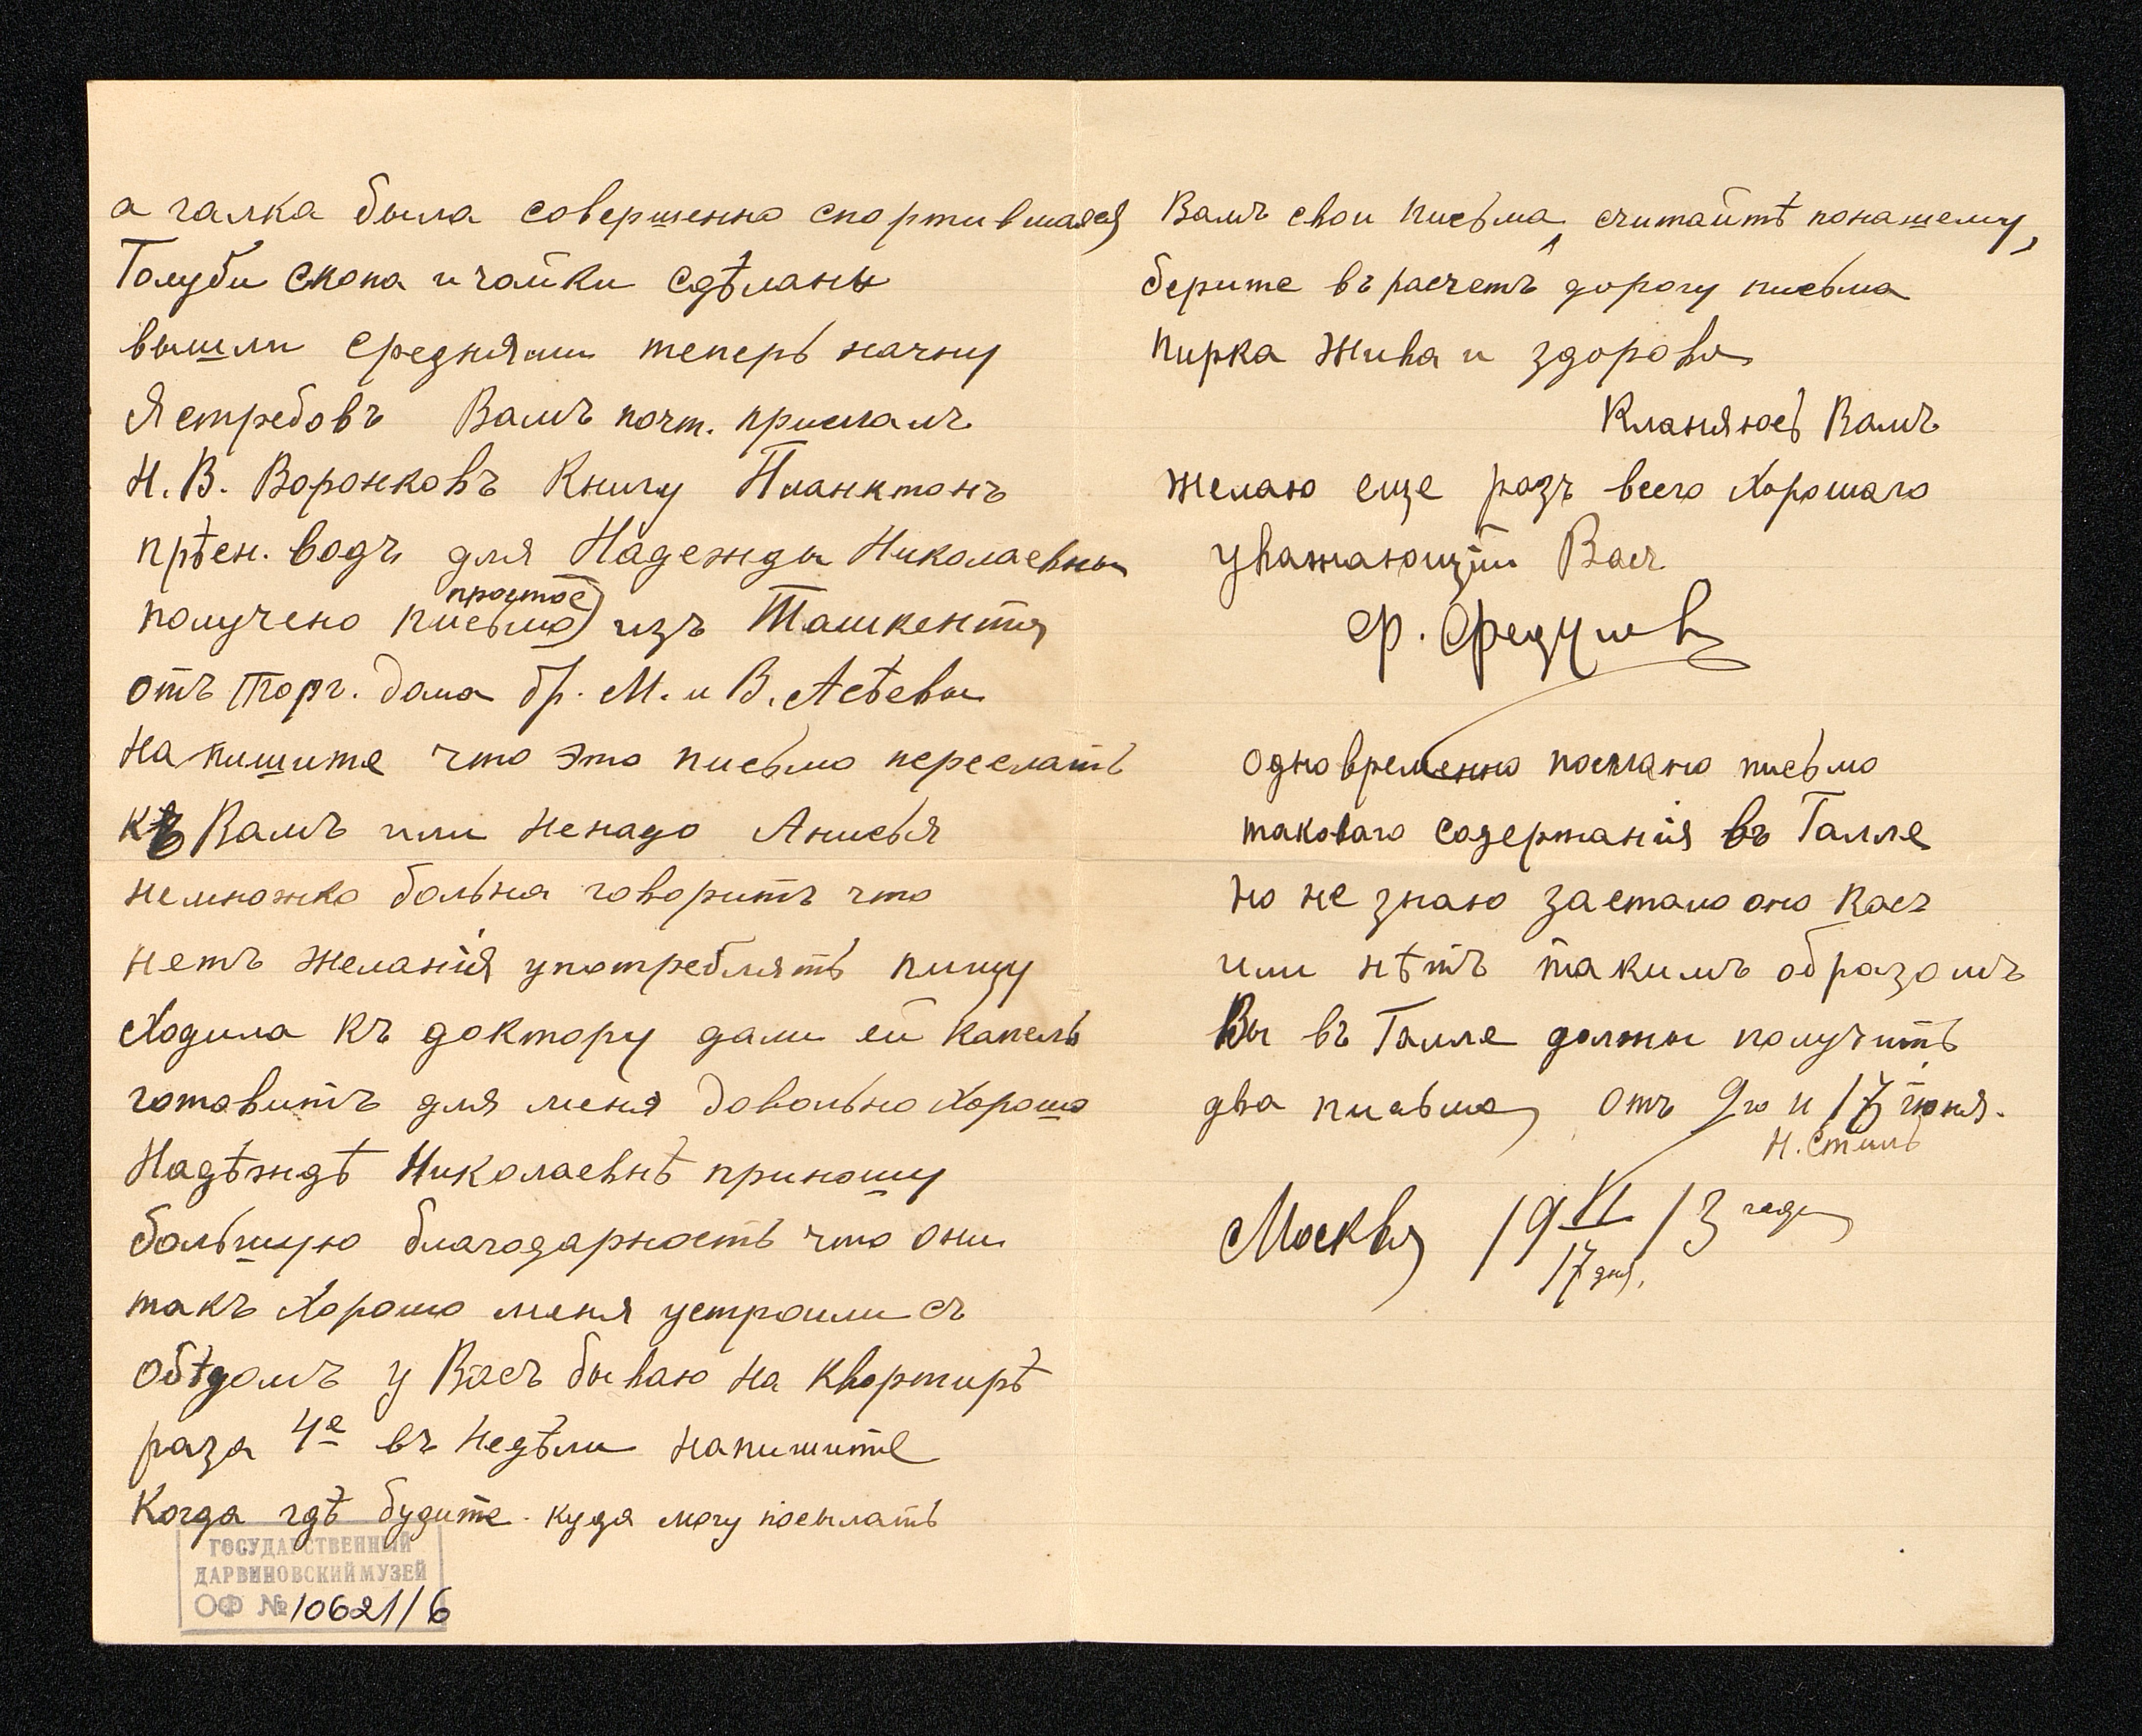 а галка была совершенно спортившаяся
Голуби скопа и чайки сдѣланы
вышли средними теперь начну
Ястребовъ Вамъ почт. прислалъ
Н. В. Воронковъ Книгу Планктонъ
прѣсн. водъ для Надежды Николаевны
простое
получено письмо изъ Ташкента
отъ Торг. дома бр. М. и В. Асѣевы
Напишите что это письмо переслать
къ Вамъ или ненадо Анисья
немножко больна говоритъ что
нетъ желанія употреблять пищу
Ходила къ доктору дали ей капель
готовитъ для меня довольно хорошо
Надѣждѣ Николаевнѣ приношу
большую благодарность что они
такъ хорошо меня устроили съ
обѣдомъ у Васъ бываю на квартирѣ
раза 4е въ недѣли напишите
Когда гдѣ будите куда могу посылать
ГОСУДАРСТВЕННЫЙ
ДАРВИНОВСКИЙ МУЗЕЙ
ОФ № 10621/6
Вамъ свои письма, считайтѣ понашему,
берите въ расчетъ дорогу письма
Пирка жива и здорова
Кланяюсь Вамъ
желаю еще разъ всего хорошаго
уважающій Васъ
Ф. Федуловъ
Одновременно послано письмо
таковаго содержанія въ Галле
но не знаю застало оно Васъ
или нѣтъ такимъ образомъ
Вы въ Галле должны получить
два письма, отъ 9го и 17 іюня.
Н. Стиль
Москва 19 VI/17 дня. 13 года